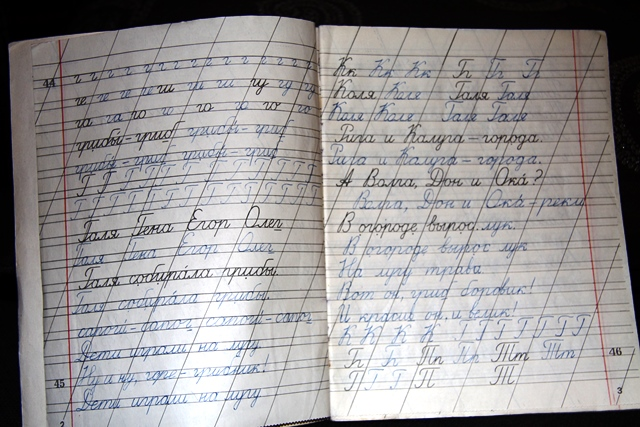 44
г г г г г г г г г г г г г г г г
ге ге ге ге ги ги ги гу гу гу
га га го го го го го го
грибы-гриб грибы-гриб
грибы-гриб грибы-гриб
Г Г Г Г Г Г Г Г Г Г Г Г Г Г
Г Г Г Г Г Г Г Г Г Г Г Г Г Г
Галя Гена Егор Олег
Галя Гена Егор Олег
Галя собирала грибы.
Галя собирала грибы.
сапоги-сапог сапоги-сапог
Дети играли на лугу
45
Ну и ну, горе-грибник!
Дети играли на лугу
2
Кк Кк Кк Гг Гг Гг
Коля Коле Галя Гале
Коле Коле Гале Гале
Рига и Калуга – города.
Рига и Калуга – города.
А Волга, Дон и Ока́?
Волга, Дон и Ока – реки
В огороде вырос лук.
В огороде вырос лук
На лугу трава
Вот он, гриб боровик!
И красив он, и велик!
К К К К Г Г Г Г Г Г Г Г
46
Гг Гг Пп Пп Тт Тт
П Г Г П Т
3